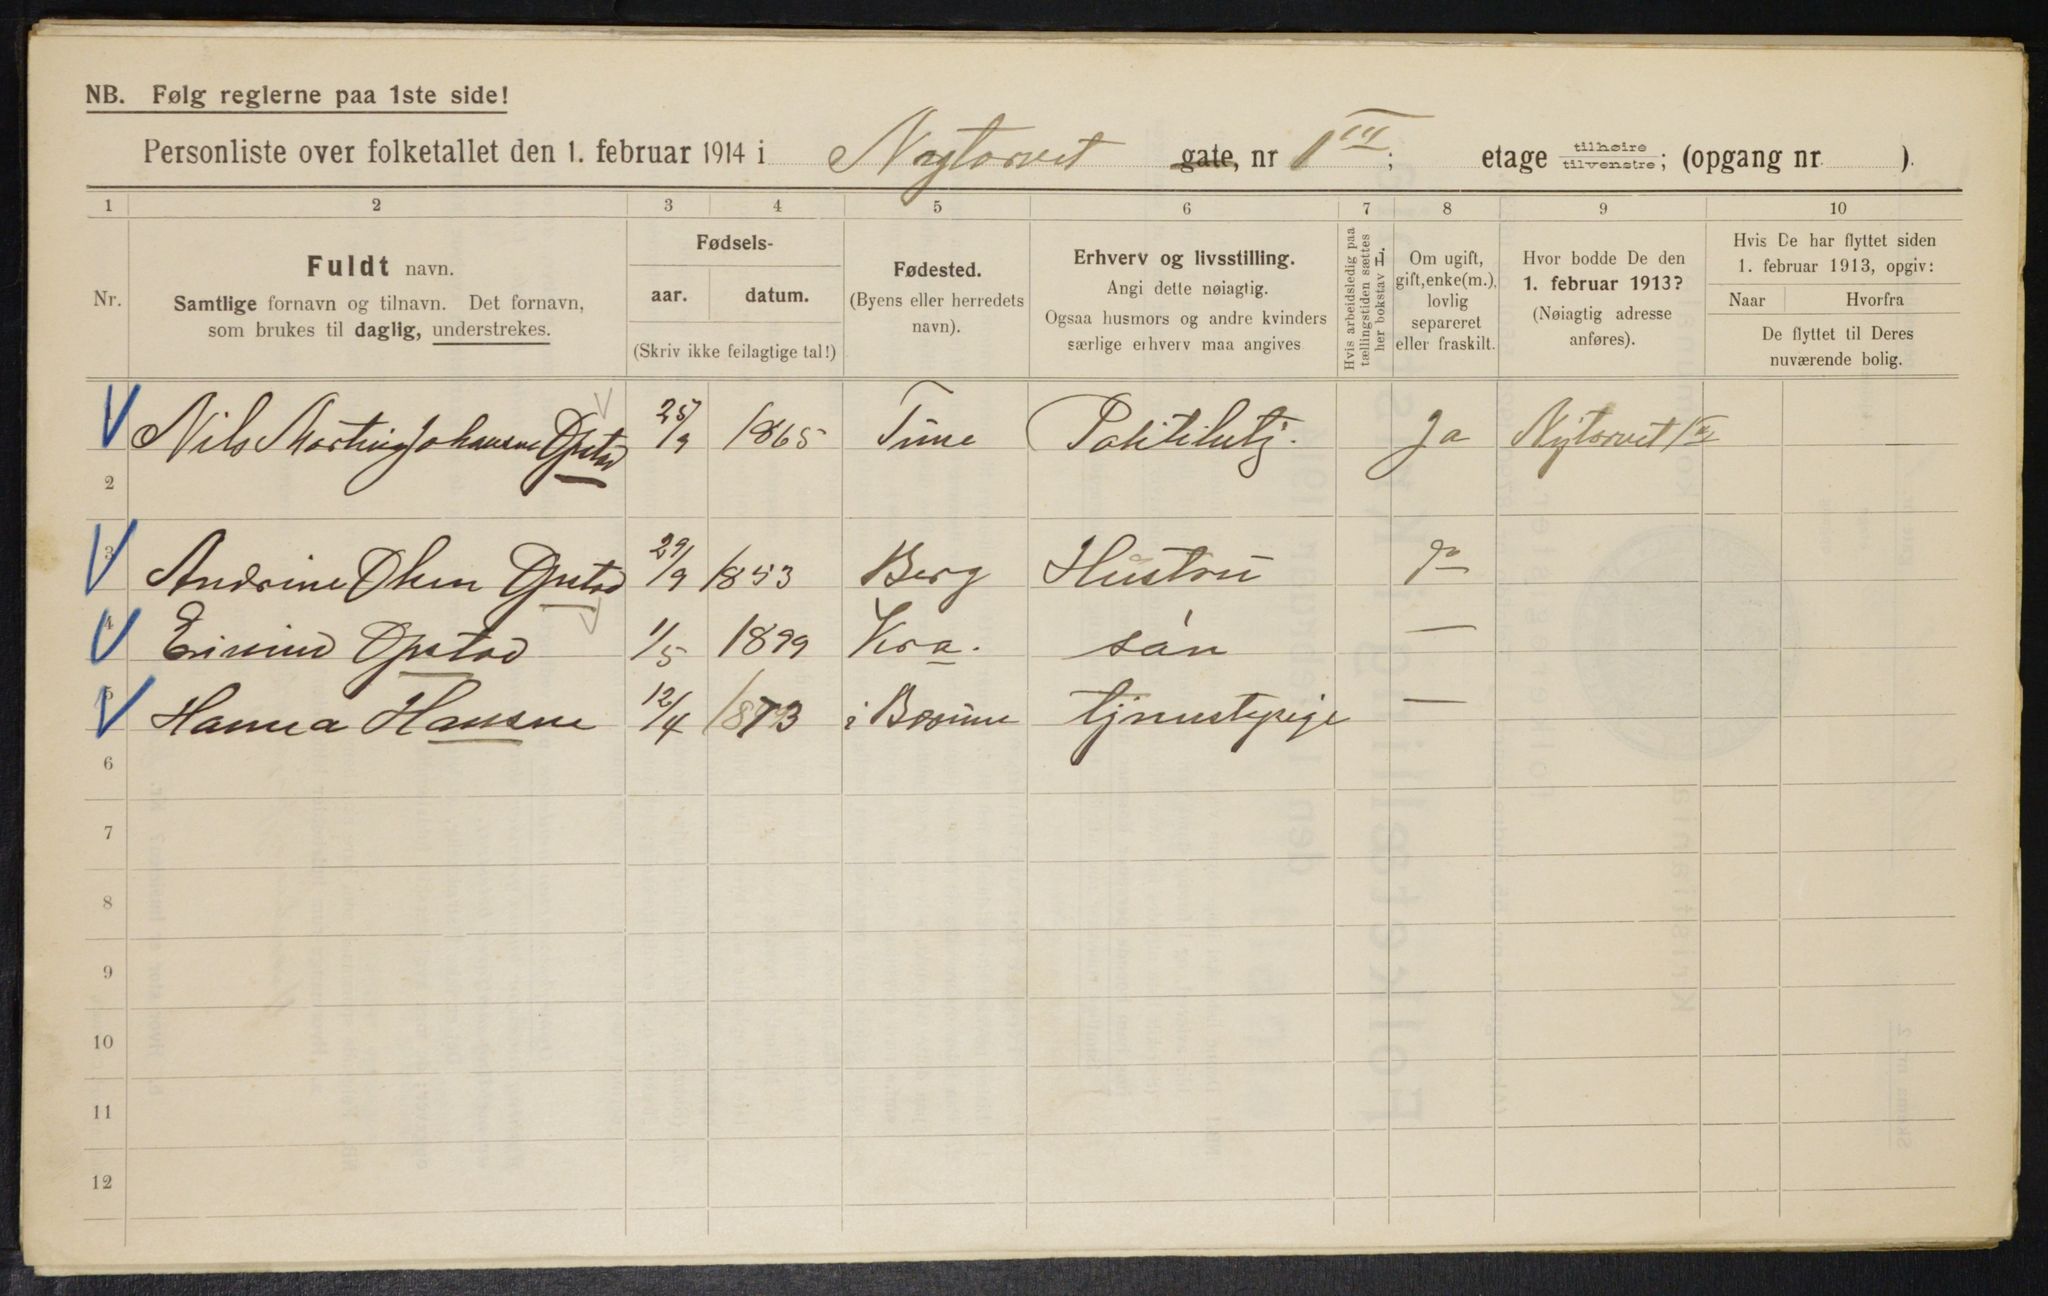 NB. Følg reglerne paa 1ste side!
Personliste over folketallet den 1. februar 1914 i Nytorvet gate, nr 1 III; etage tilhøire tilvenstre; (opgang nr ).
1 2 3 4 5 6 7 8 9 10
Nr.
Fuldt navn.
Samtlige fornavn og tilnavn. Det fornavn,
som brukes til daglig, understrekes.
Fødsels-
aar. datum.
(Skriv ikke feilagtige tal!)
Fødested.
(Byens eller herredets
navn).
Erhverv og livsstilling.
Angi dette nøiagtig.
Ogsaa husmors og andre kvinders
særlige erhverv maa angives
Hvis arbeidsledig paa
tællingstiden sættes
her bokstav L.
Om ugift,
gift, enke(m.),
lovlig
separeret
eller fraskilt.
Hvor bodde De den
1. februar 1913?
(Nøiagtig adresse
anføres).
Hvis De har flyttet siden
1. februar 1913, opgiv:
Naar Hvorfra
De flyttet til Deres
nuværende bolig.
1 Nils Martin Johansen Opstad 25/9 1865 Tune Ja Nytorvet 1
2
3 Andrine Olsen Opstad 29/9 1853 Berg Hustru
4 Opstad 1/5 1899 Kra. sön —
5 Hanna Hansen 12/4 1873 i Bærum —
6
7
8
9
10
11
12